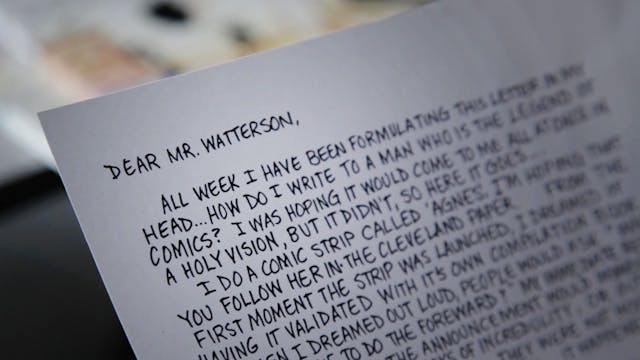 DEAR MR. WATTERSON,
ALL WEEK I HAVE BEEN FORMULATING THIS LETTER IN MY
HEAD...HOW DO I WRITE TO A MAN WHO IS THE LEGEND OF
COMICS? I WAS HOPING IT WOULD COME TO ME ALL AT ONCE IN
A HOLY VISION, BUT IT DIDN'T, SO HERE IT GOES...
I DO A COMIC STRIP CALLED "AGNES." I'M HOPING THAT
YOU FOLLOW HER IN THE CLEVELAND PAPER. FROM THE
FIRST MOMENT THE STRIP WAS LAUNCHED, I DREAMED OF
HAVING IT VALIDATED WITH IT'S OWN COMPILATION BOOK.
WHEN I DREAMED OUT LOUD, PEOPLE WOULD ASK
TO DO THE FOREWARD?" MY IMMEDIATE
THE ANNOUNCEMENT WOULD
OF INCREDULITY, OR
WERE NOT